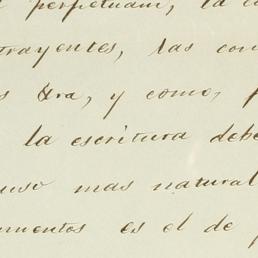 perpetuam, la
trayentes, las con
s &ra, y como,
la escritura debe
uso mas natural
umentos es el de